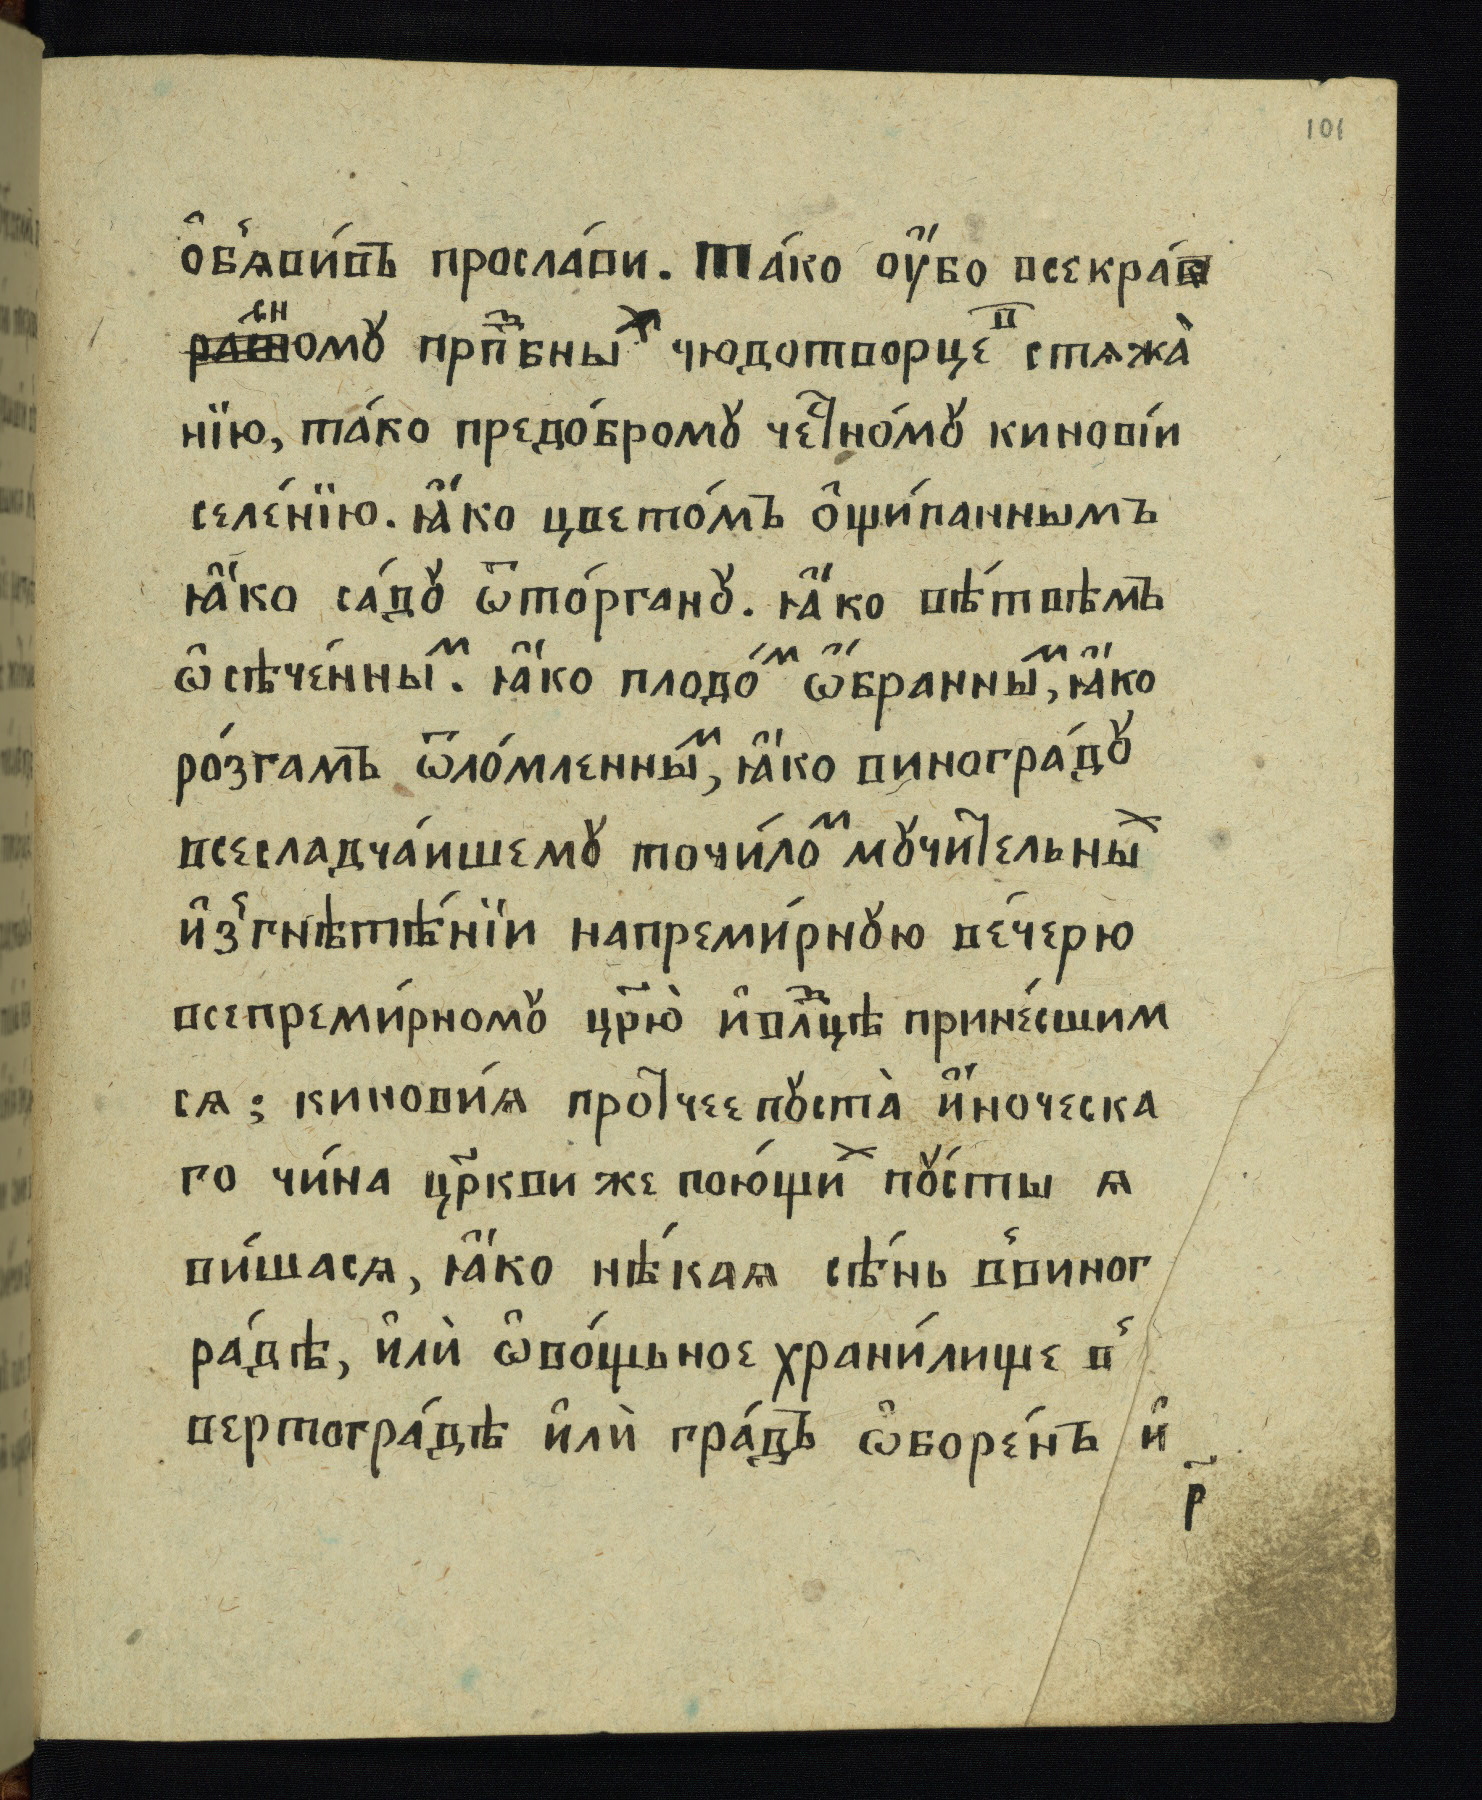 101
ѻ҆б̾ѧви́въ просла́ви. Та́ко ѹ҆́бо всекра́
сномꙋ прпⷣбныхъ чюдотворцевъ стѧжа̀
нїю, та́ко предо́бромꙋ честно́мꙋ кинові́и
селе́нїю. ꙗ҆́ко цвето́мъ ѻ҆щи́паннымъ
ꙗ҆́ко са́дꙋ ѿто́рганꙋ. ꙗ҆́ко вѣ́твѣмъ
ѡ҆сѣче́нныⷨ. ꙗ҆́ко плодо́ⷨ ѡ҆́бранныⷨ, ꙗ҆́ко
ро́згамъ ѿло́мленныⷨ, ꙗ҆́ко виногра́дꙋ
всесладча́ишемꙋ точи́лоⷨ мꙋчи́тельныⷯ
и҆з̾гнѣтѣ́нїи напреми́рнꙋю ве́черю
всепреми́рномꙋ цр҃ю̀ и҆влⷣцѣ прине́сшим
сѧ; кинови́ѧ про́тчее пꙋста̀ и҆́ноческа
го чи́на цр҃кви же пою́щиⷯ пꙋ́сты ѧ
ви́шасѧ, ꙗ҆́ко нѣ́каѧ сѣ́нь в̾виног
ра́дѣ, и҆лѝ ѡ҆во́щьное храни́лище в̾
вертогра́дѣ и҆лѝ гра́дъ ѡ҆боре́нъ и҆
р҃